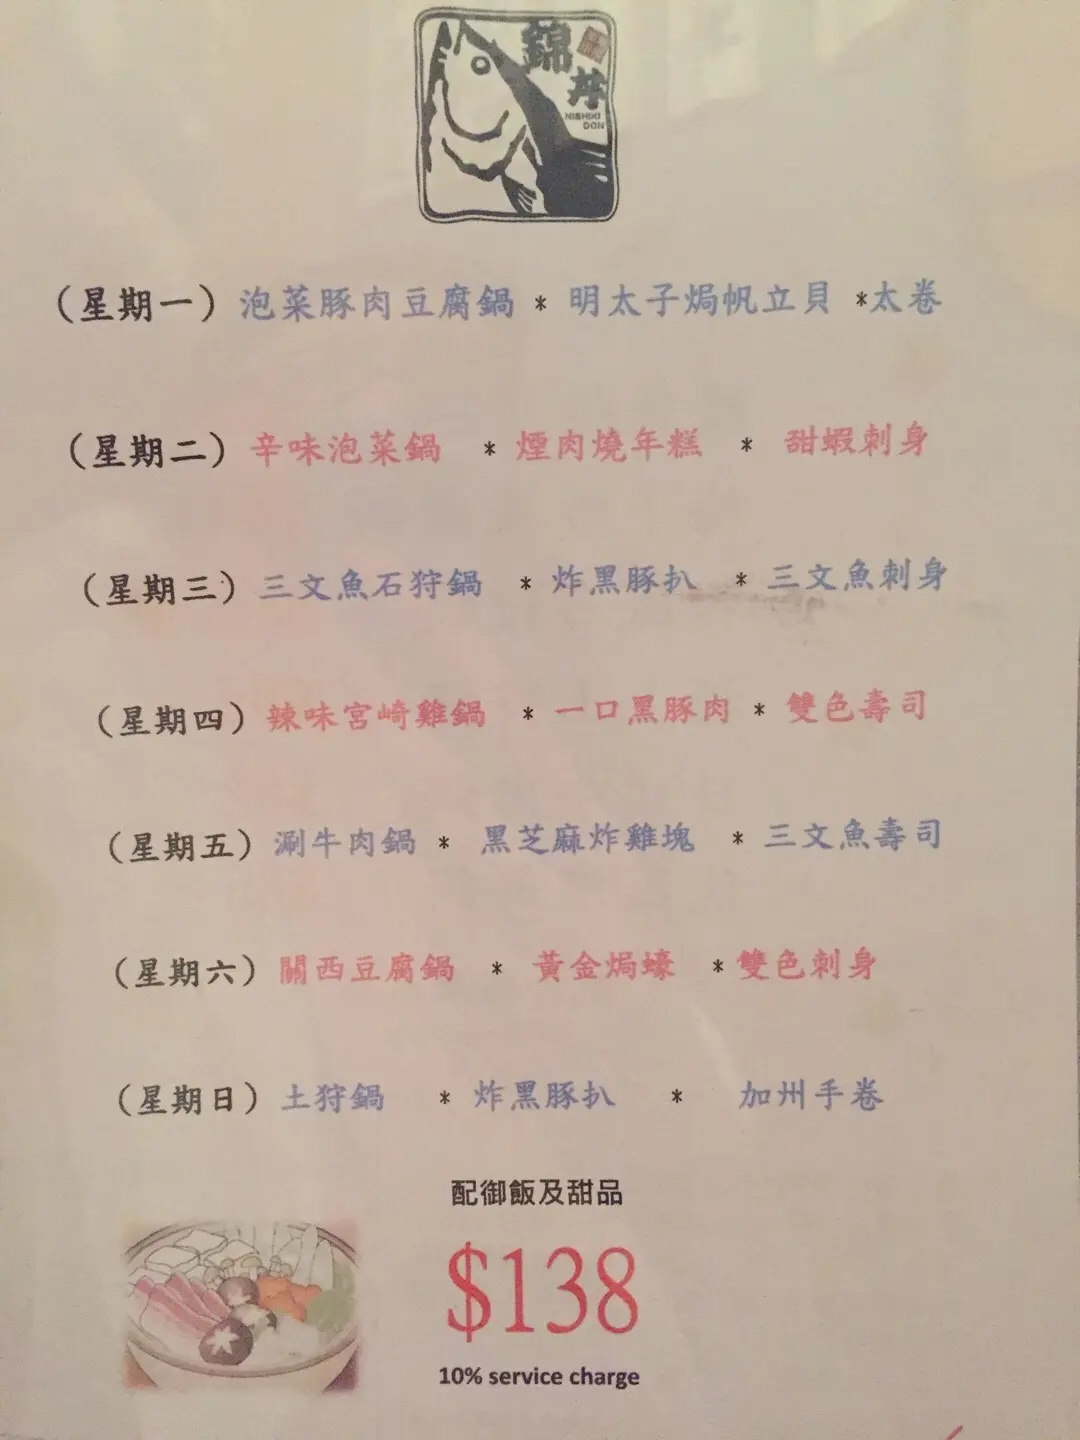 錦
丼
NISHIKI
DON
(星期一) 泡菜豚肉豆腐鍋 * 明太子焗帆立貝 *太卷
(星期二) 辛味泡菜鍋 * 煙肉燒年糕 * 甜蝦刺身
(星期三) 三文魚石狩鍋 * 炸黑豚扒 * 三文魚刺身
(星期四) 辣味宮崎雞鍋 * 一口黑豚肉 * 雙色壽司
(星期五) 涮牛肉鍋 * 黑芝麻炸雞塊 * 三文魚壽司
(星期六) 關西豆腐鍋 * 黃金焗蠔 * 雙色刺身
(星期日) 土狩鍋 * 炸黑豚扒 * 加州手卷
配御飯及甜品
$138
10% service charge